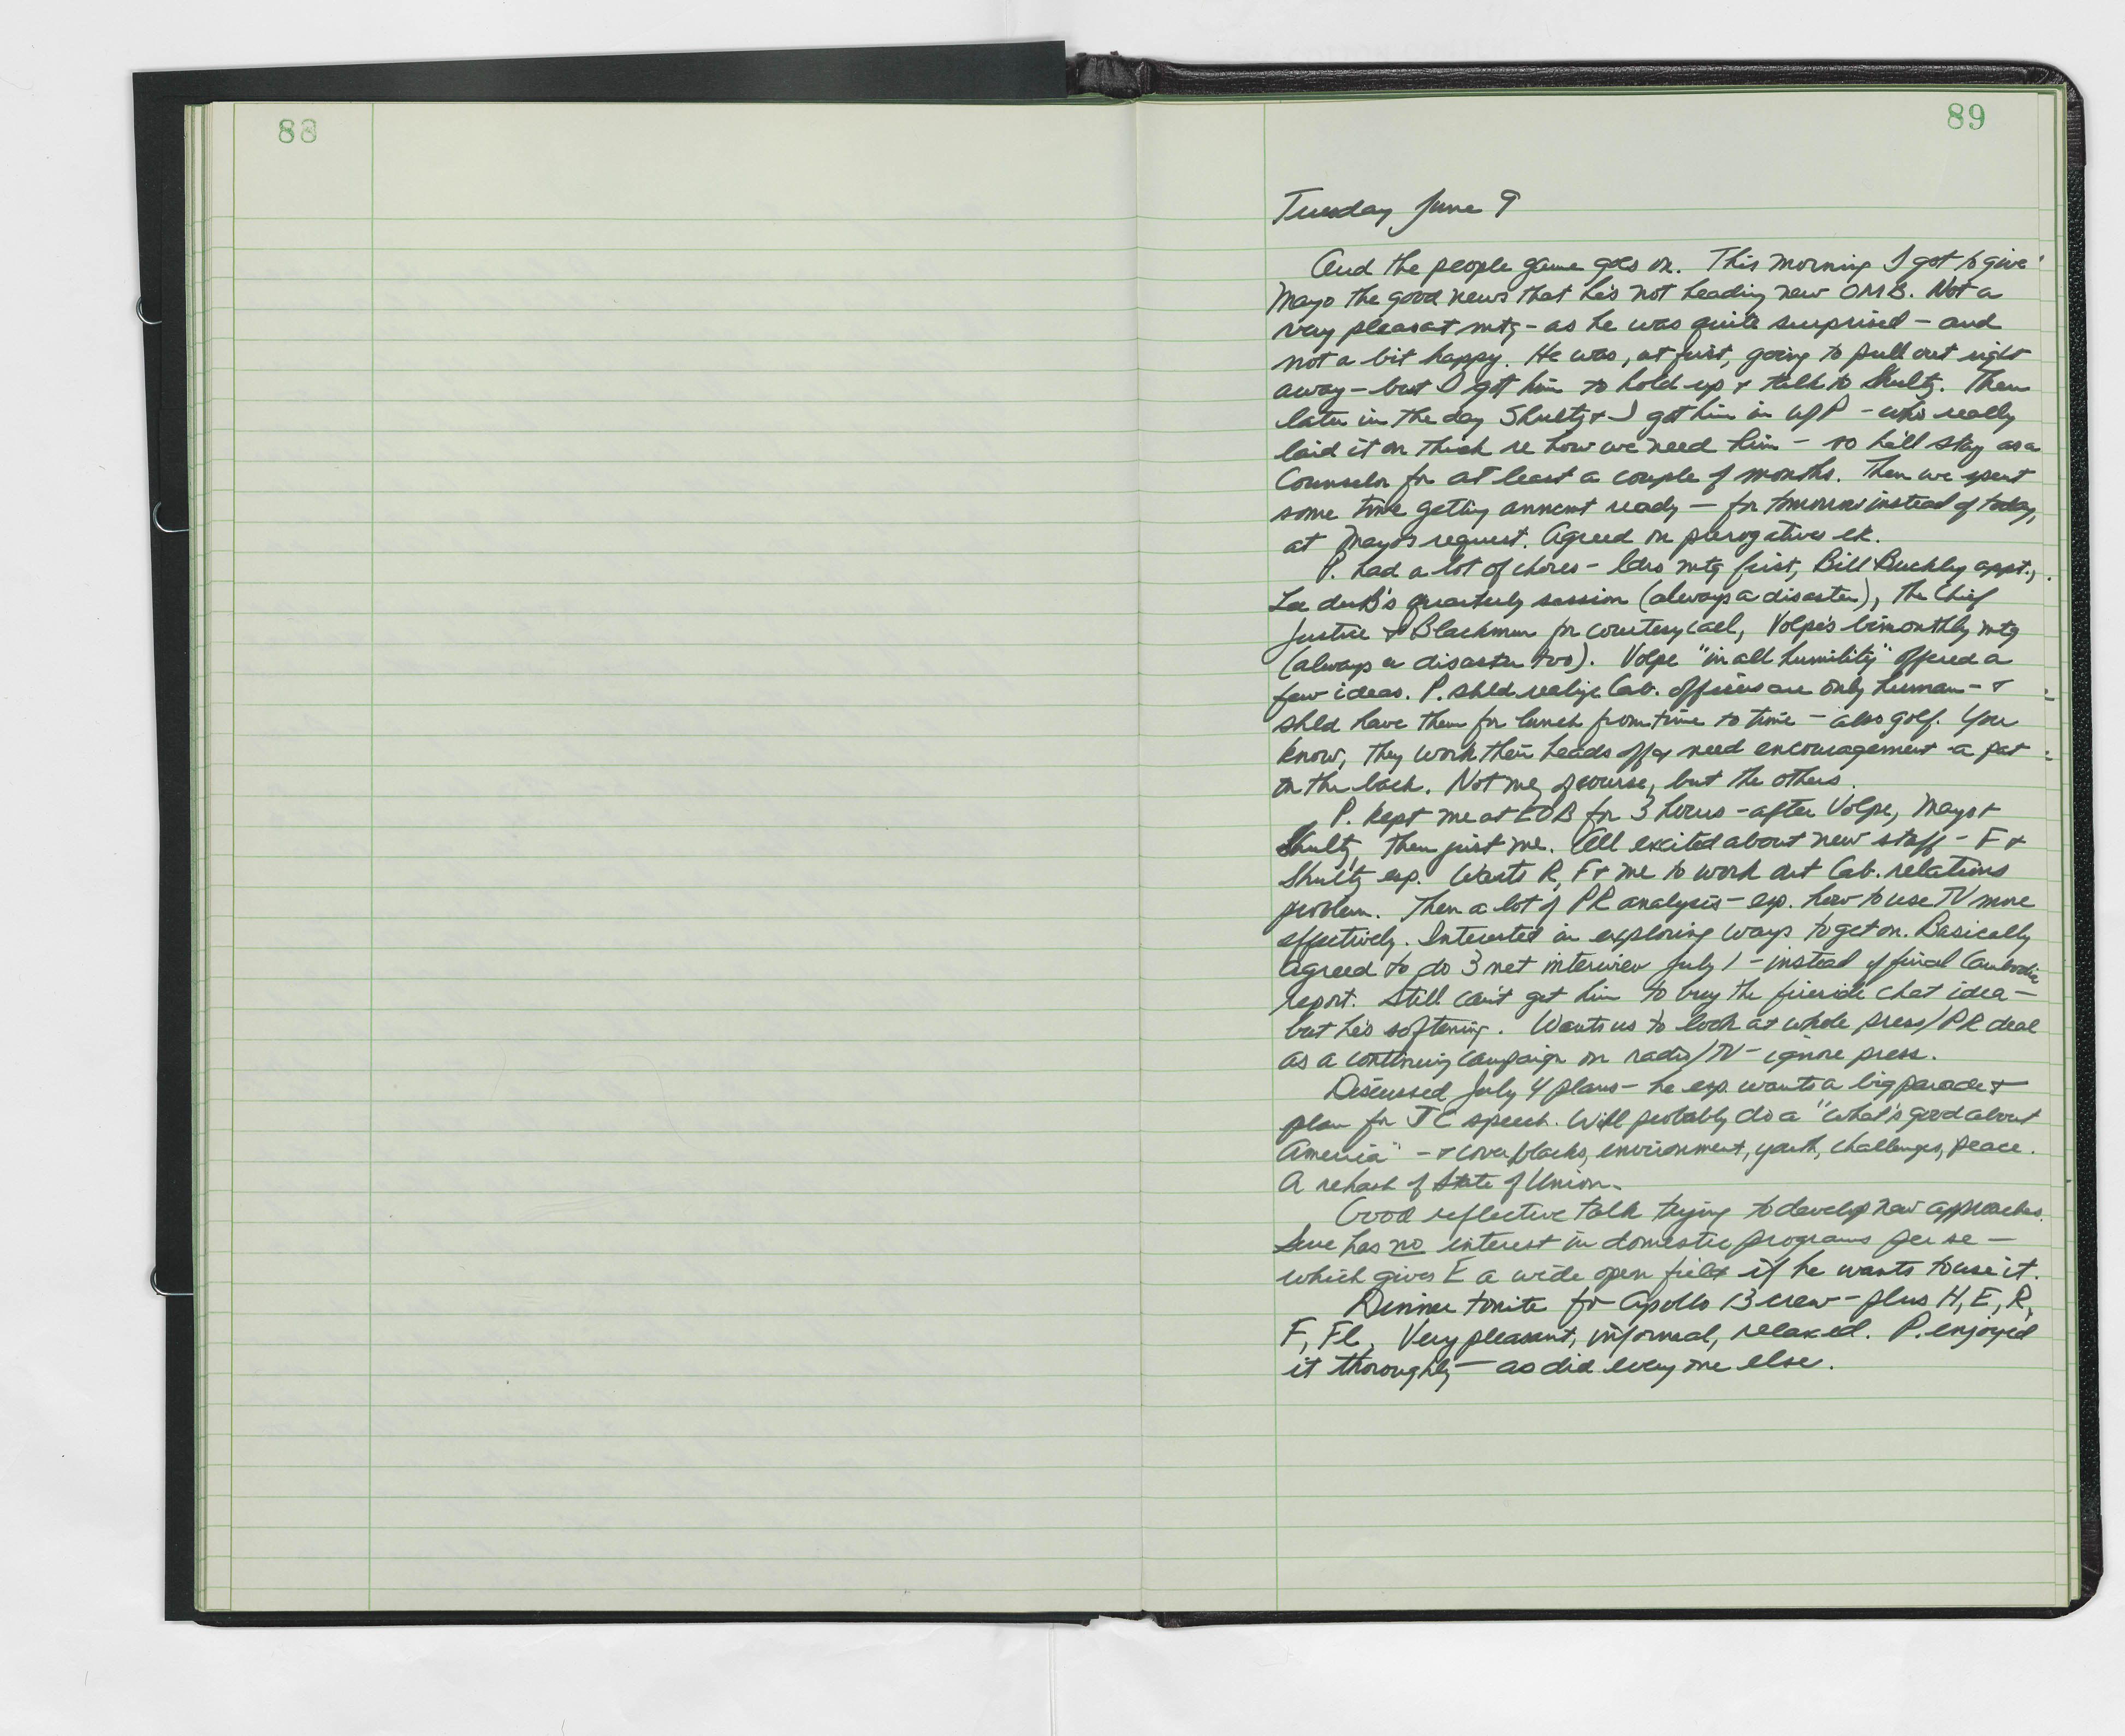 88
89
Tuesday June 9
And the people game goes on. This morning I got to give
Mayo the good news that he's not heading new OMB. Not a
very pleasant mtg - as he was quite surprised - and
not a bit happy. He was, at first, going to pull out right
away - but I got him to hold up & talk to Shultz. Then
later in the day Shultz & I got him in w/P - who really
laid it on thick re how we need him - so he'll stay as a
Counselor for at least a couple of months. Then we spent
some time getting annemt ready - for tomorrow instead of today,
at Mayo's request. Agreed on prerogatives etc.
P. had a lot of chores - ldrs mtg first, Bill Buckley appt.,
Lee duB's quarterly session (always a disaster), the Chief
Justice & Blackmun for courtesy call, Volpe's bimonthly mtg
(always a disaster too). Volpe "in all humility" offered a
few ideas. P. shld realize Cab. officers are only human - &
shld have them for lunch from time to time - also golf. You
know, they work their heads off & need encouragement - a pat
on the back. Not me, of course, but the others.
P. kept me at EOB for 3 hours - after Volpe, Mayo &
Shultz, then just me. All excited about new staff - F &
Shultz esp. Wants R, F & me to work out Cab. relations
problem. Then a lot of PR analysis - esp. how to use TV more
effectively. Interested in exploring ways to get on. Basically
agreed to do 3 net interview July 1 - instead of final Cambodia
report. Still can't get him to buy the fireside chat idea -
but he's softening. Wants us to look at whole press/PR deal
as a continuing campaign on radio/TV - ignore press.
Discussed July 4 plans - he esp. wants a big parade &
plan for JC speech. Will probably do a "what's good about
America" - & cover blacks, environment, youth, challenges, peace.
A rehash of State of Union.
Good reflective talk trying to develop new approaches.
Sure has no interest in domestic programs per se -
which gives E a wide open field if he wants to use it.
Dinner tonite for Apollo 13 crew - plus H, E, R,
F, Fl, Very pleasant, informal, relaxed. P. enjoyed
it thoroughly - as did every one else.